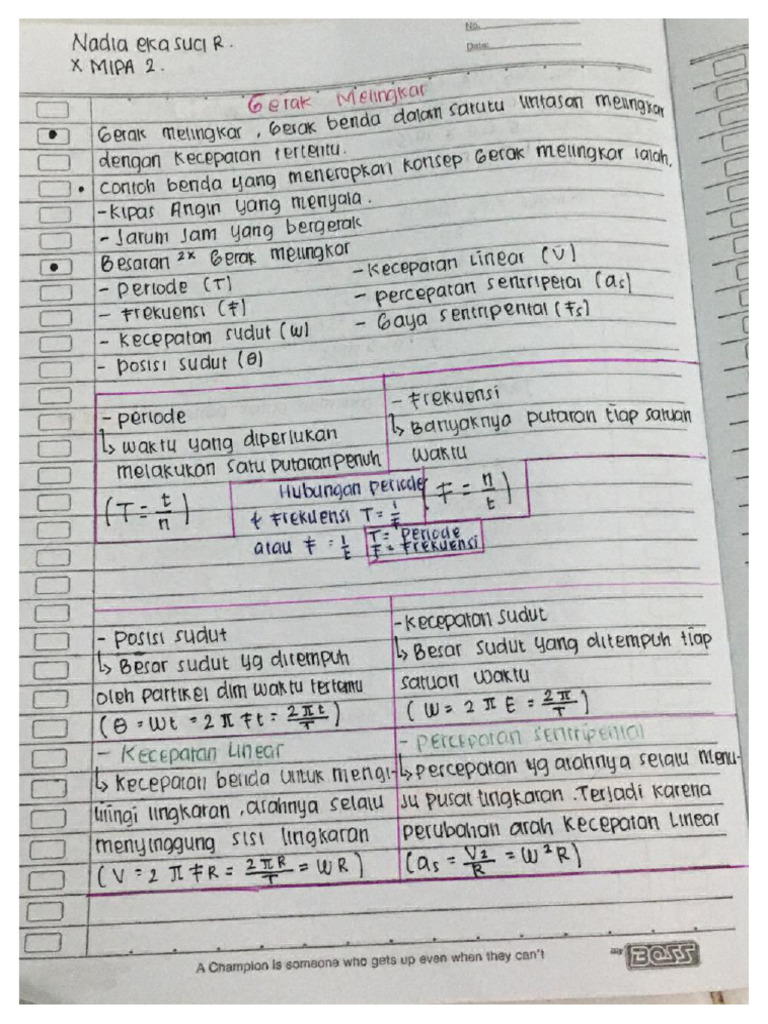 Nadia eka suci R.
X MIPA 2.
No.
Date:
Gerak Melingkar
• Gerak melingkar, Gerak benda dalam satutu lintasan melingkar
dengan kecepatan tertentu.
• contoh benda yang menerapkan konsep Gerak melingkar ialah,
- Kipas Angin yang menyala.
- Jarum Jam yang bergerak
• Besaran 2x Gerak melingkar
- periode (T)
- Frekuensi (F)
- Kecepatan sudut (W)
- posisi sudut (θ)
- Kecepatan Linear (V)
- percepatan sentripetal (as)
- Gaya sentripental (Fs)
- periode
↳ waktu yang diperlukan
melakukan satu putaran penuh
(T = t/n)
- Frekuensi
↳ Banyaknya putaran tiap satuan
waktu
(F = n/t)
Hubungan periode
& Frekuensi T = 1/F
atau F = 1/t
T = Periode
F = Frekuensi
- Posisi sudut
↳ Besar sudut yg ditempuh
oleh partikel dlm waktu tertentu
(θ = Wt = 2 π Ft = 2πt/T)
- Kecepatan sudut
↳ Besar sudut yang ditempuh tiap
satuan waktu
(W = 2 π F = 2π/T)
- Kecepatan Linear
↳ Kecepatan benda untuk mengi-
lilingi lingkaran, arahnya selalu
menyinggung sisi lingkaran
(V = 2 π FR = 2πR/T = WR)
- percepatan sentripental
↳ percepatan yg arahnya selalu menu-
ju pusat lingkaran. Terjadi karena
perubahan arah kecepatan Linear
(as = V2/R = W²R)
A Champion is someone who gets up even when they can't
my BOSS